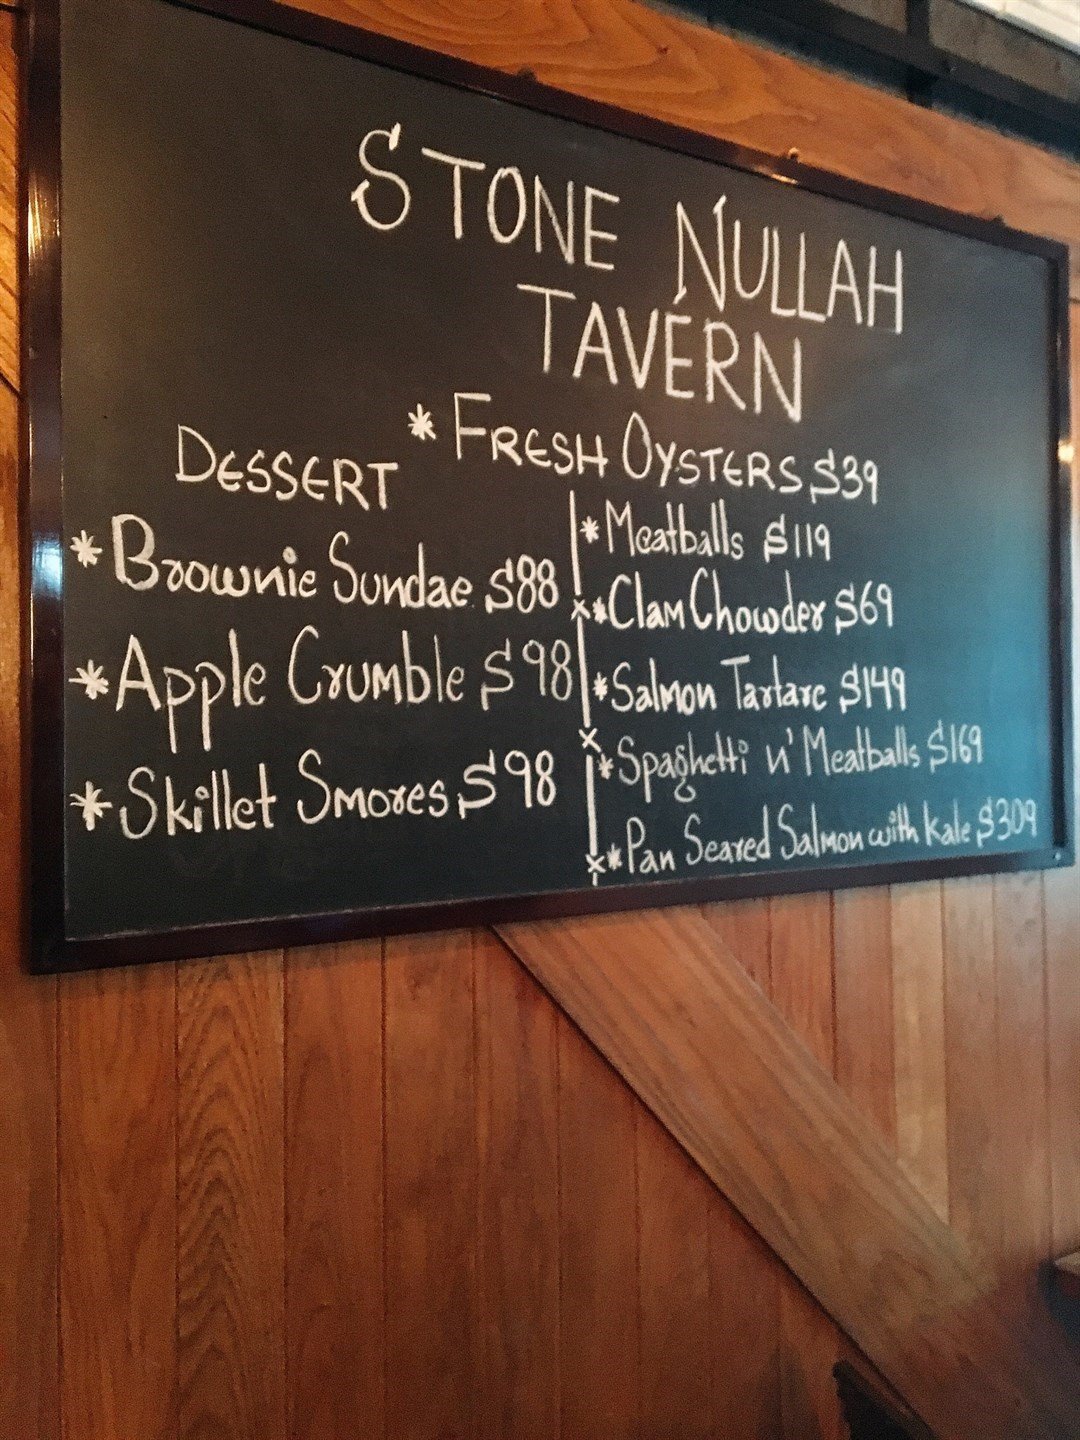 STONE NULLAH
TAVERN
* FRESH OYSTERS $39
DESSERT
* Brownie Sundae $88
* Apple Crumble $98
* Skillet Smores $98
* Meatballs $119
* Clam Chowder $69
* Salmon Tartare $149
* Spaghetti n' Meatballs $169
* Pan Seared Salmon with Kale $309